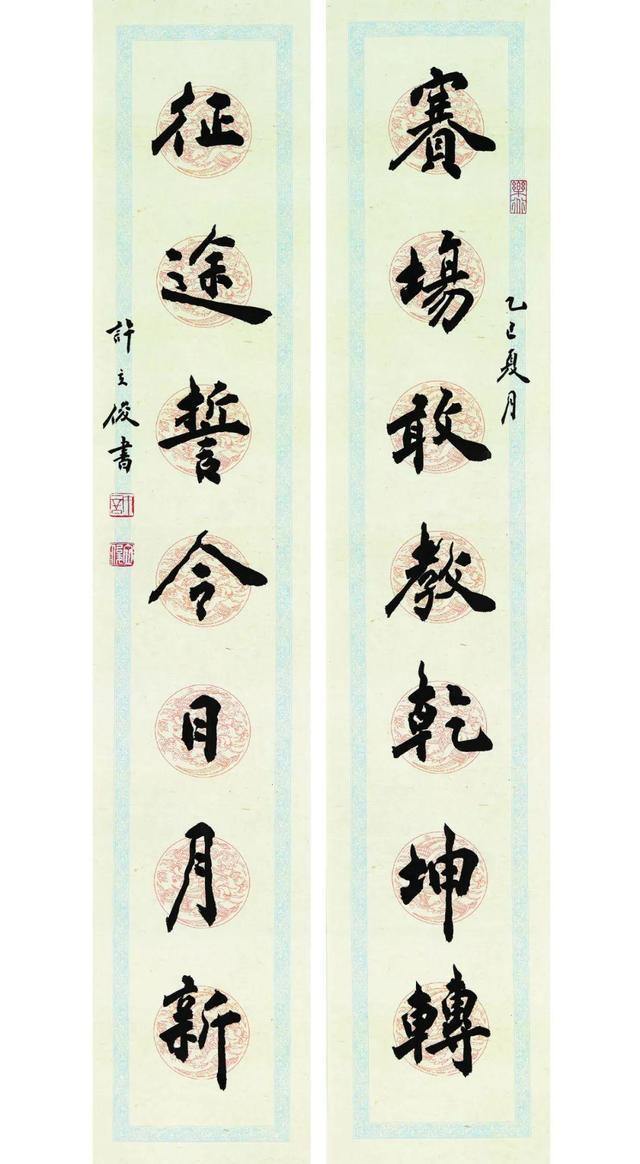 賽場敢教乾坤轉
乙巳夏月
征途誓令日月新
許立俊書